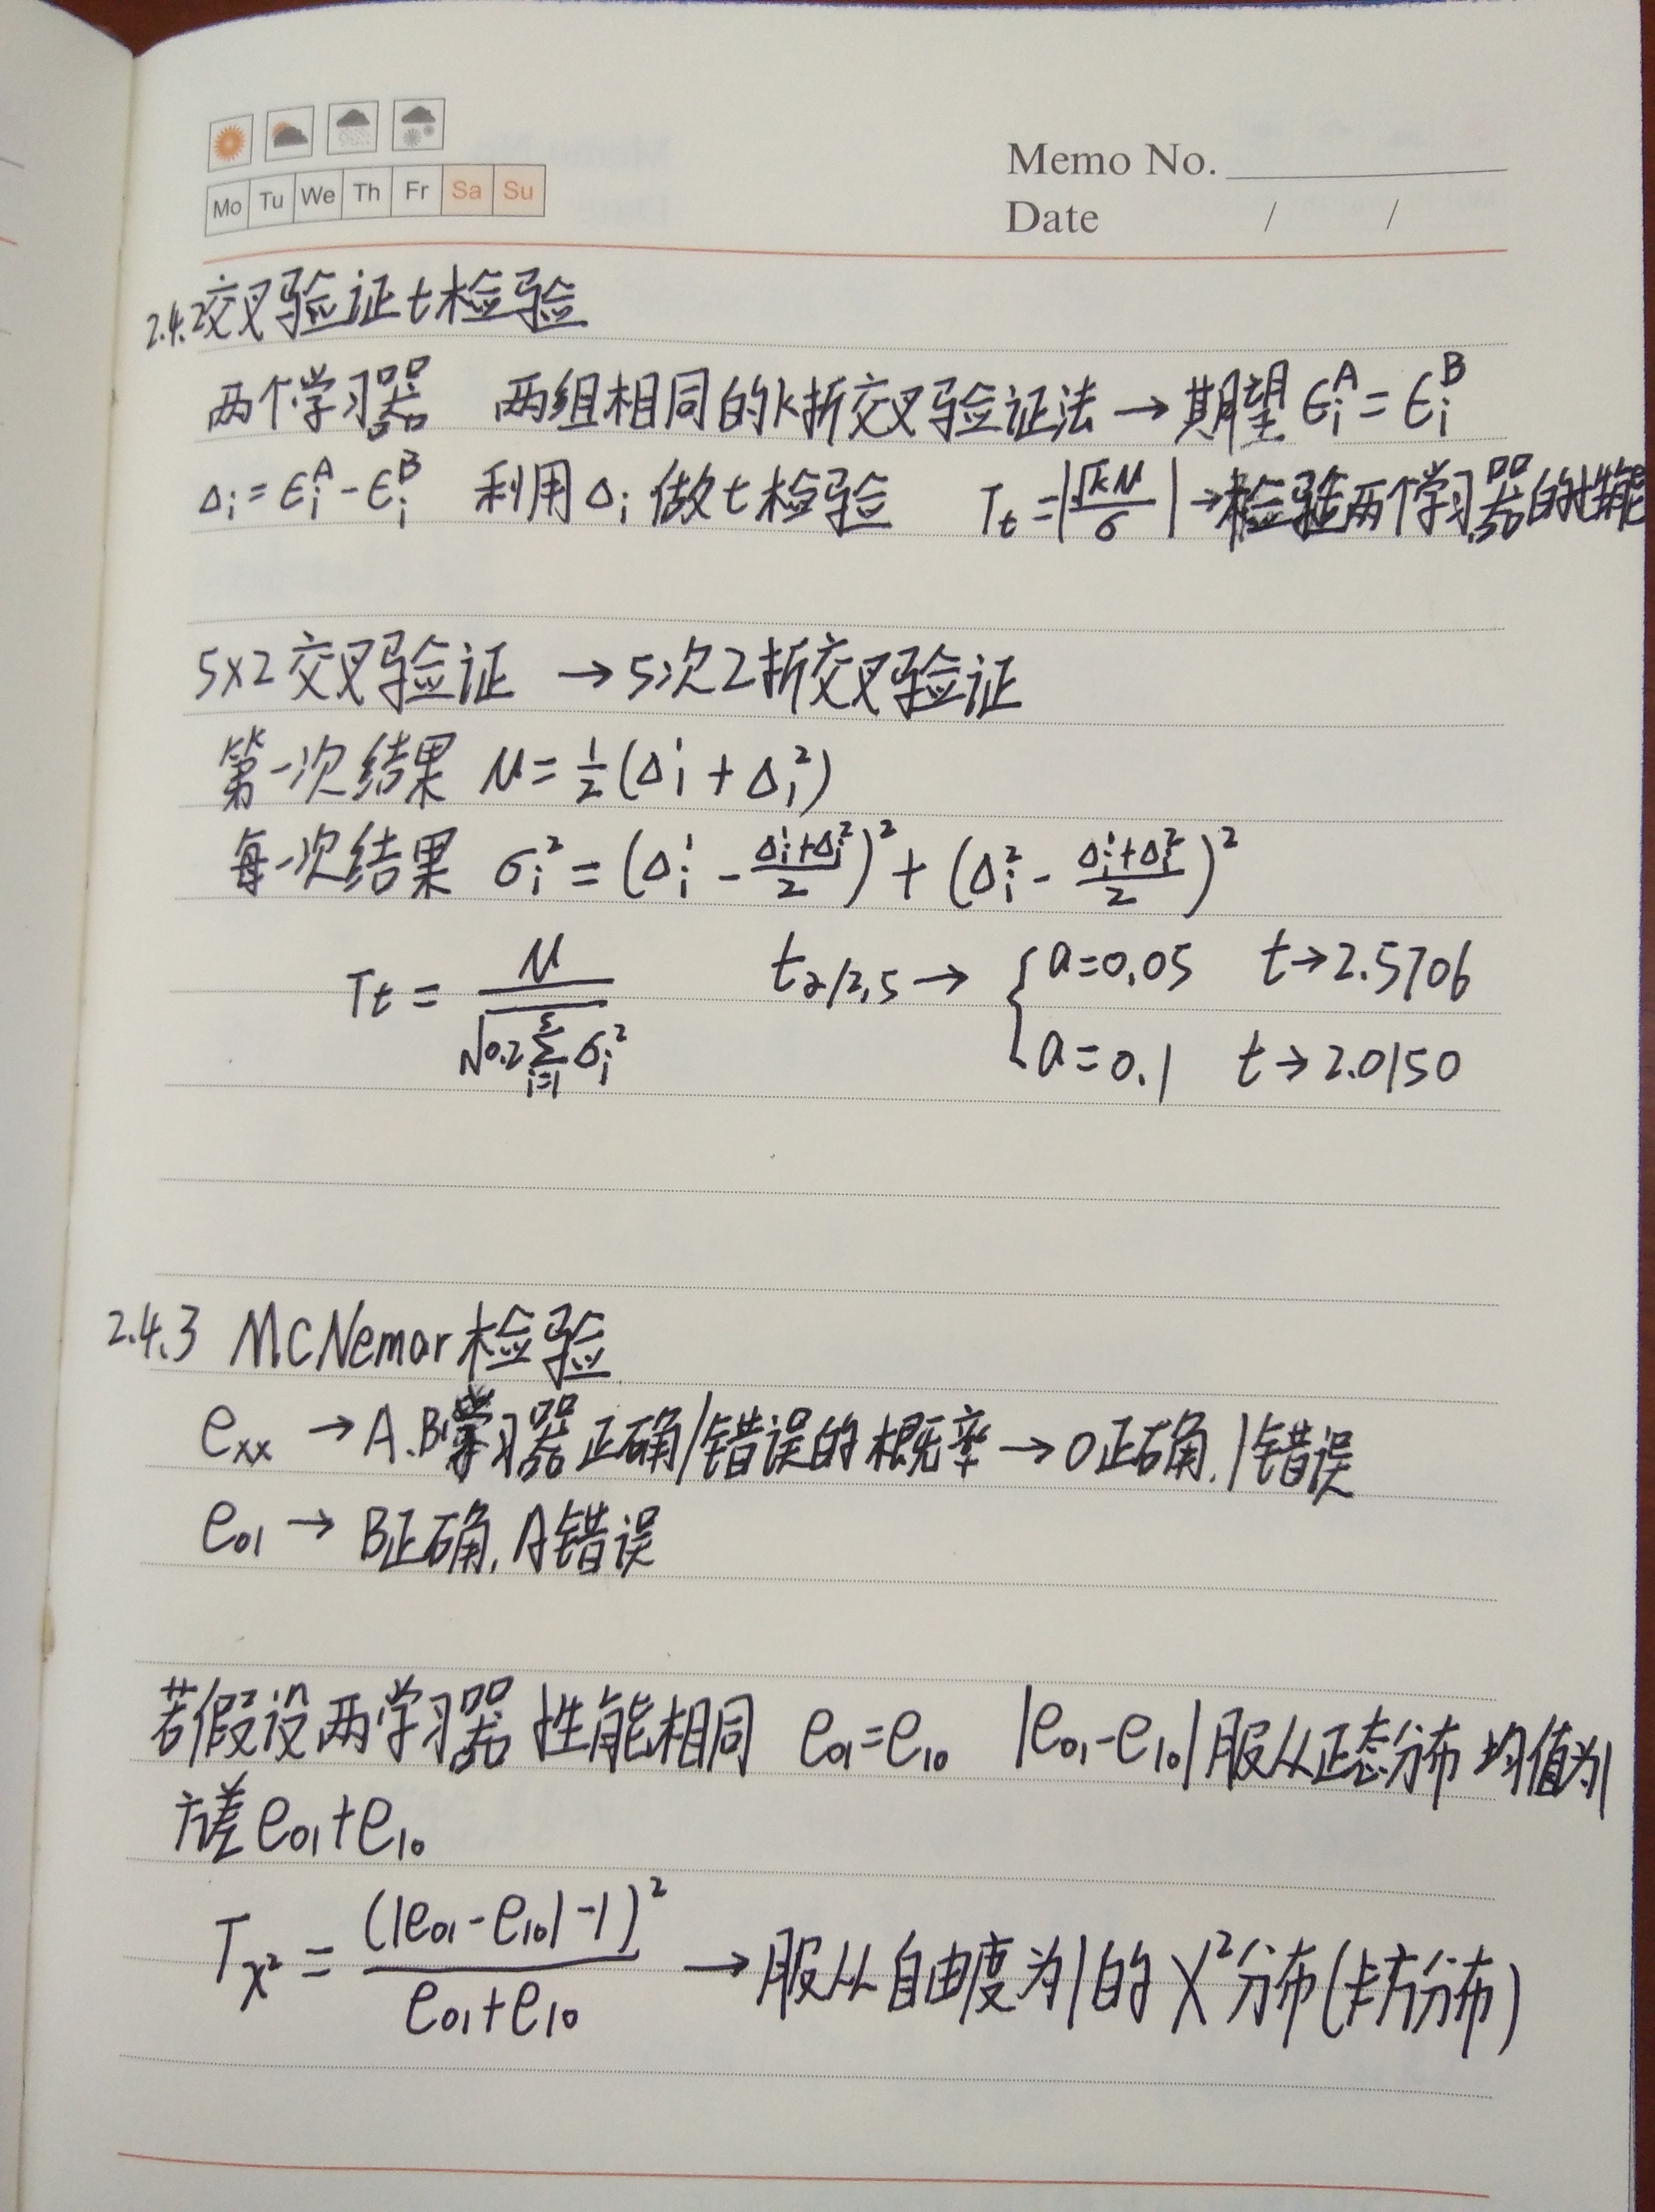 Mo Tu We Th Fr Sa Su
Memo No.
Date / /
2.4.2交叉验证t检验
两个学习器 两组相同的k折交叉验证法→期望 ϵᵢᴬ=ϵᵢᴮ
Δᵢ=ϵᵢᴬ-ϵᵢᴮ 利用Δᵢ做t检验 Tt=|√kμ/σ|→检验两个学习器的性能
5×2交叉验证 →5次2折交叉验证
第一次结果 μ=1/2(Δᵢ¹+Δᵢ²)
每一次结果 σᵢ²=(Δᵢ¹-(Δᵢ¹+Δᵢ²)/2)²+(Δᵢ²-(Δᵢ¹+Δᵢ²)/2)²
Tt=μ/√(0.2∑ᵢ₌₁⁵σᵢ²) t α/2,5→ { a=0.05 t→2.5706
a=0.1 t→2.0150
2.4.3 MCNemar检验
exx →A.B学习器正确/错误的概率→0正确,1错误
e01→B正确,A错误
若假设两学习器性能相同 e01=e10 |e01-e10|服从正态分布 均值为1
方差e01+e10
Tχ²=(|e01-e10|-1)²/(e01+e10) →服从自由度为1的χ²分布(卡方分布)